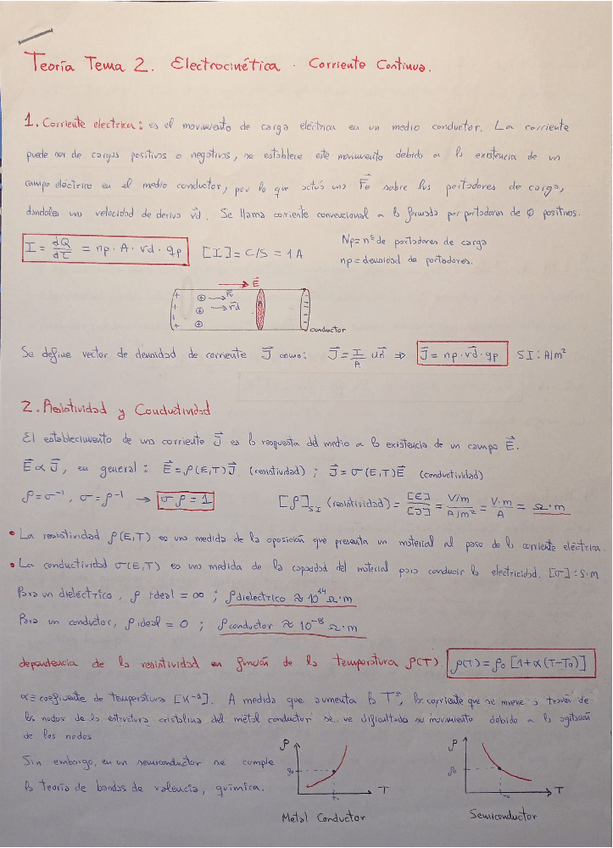 Teoría Tema 2. Electrocinética. Corriente Continua.
1. Corriente electrica: es el movimiento de carga eléctrica en un medio conductor. La corriente
puede ser de cargas positivas o negativas, se establece este movimiento debido a la existencia de un
campo eléctrico en el medio conductor, por lo que actúa una F⃗e sobre los portadores de carga,
dandoles una velocidad de deriva v⃗d. Se llama corriente convencional a la formada por portadores de Q positivos.
I = dQ/dt = np · A · vd · qp [I] = C/S = 1A Np = nº de portadores de carga
np = densidad de portadores.
E⃗
+ F⃗e
+ v⃗d
+
conductor
Se define vector de densidad de corriente J⃗ como: J⃗ = I/A un⃗ ⇒ J⃗ = np · v⃗d · qp SI: A/m²
2. Resistividad y Conductividad
El establecimiento de una corriente J⃗ es la respuesta del medio a la existencia de un campo E⃗.
E⃗ ∝ J⃗, en general: E⃗ = ρ(E,T) J⃗ (resistividad) ; J⃗ = σ(E,T) E⃗ (conductividad)
ρ = σ⁻¹, σ = ρ⁻¹ → σ ρ = 1 [ρ]SI (resistividad) = [E]/[J] = V/m / A/m² = V·m/A = Ω·m
• La resistividad ρ(E,T) es una medida de la oposición que presenta un material al paso de la corriente eléctrica.
• La conductividad σ(E,T) es una medida de la capacidad del material para conducir la electricidad. [σ]: S·m
Para un dieléctrico, ρ ideal = ∞ ; ρdielectrico ≈ 10¹⁴ Ω·m
Para un conductor, ρ ideal = 0 ; ρconductor ≈ 10⁻⁸ Ω·m
dependencia de la resistividad en función de la temperatura ρ(T) ρ(T) = ρ₀ [1 + α(T-T₀)]
α = coeficiente de temperatura [K⁻¹]. A medida que aumenta la Tª, la corriente que se mueve a través de
los nodos de la estructura cristalina del metal conductor se ve dificultado su movimiento debido a la agitación
de los nodos
Sin embargo, en un semiconductor se cumple
la teoría de bandas de valencia, química.
ρ
ρ₀
T₀
T
Metal Conductor
ρ
ρ₀
T₀
T
Semiconductor